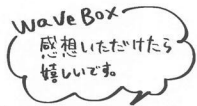 wave Box
感想いただけたら
嬉しいです。